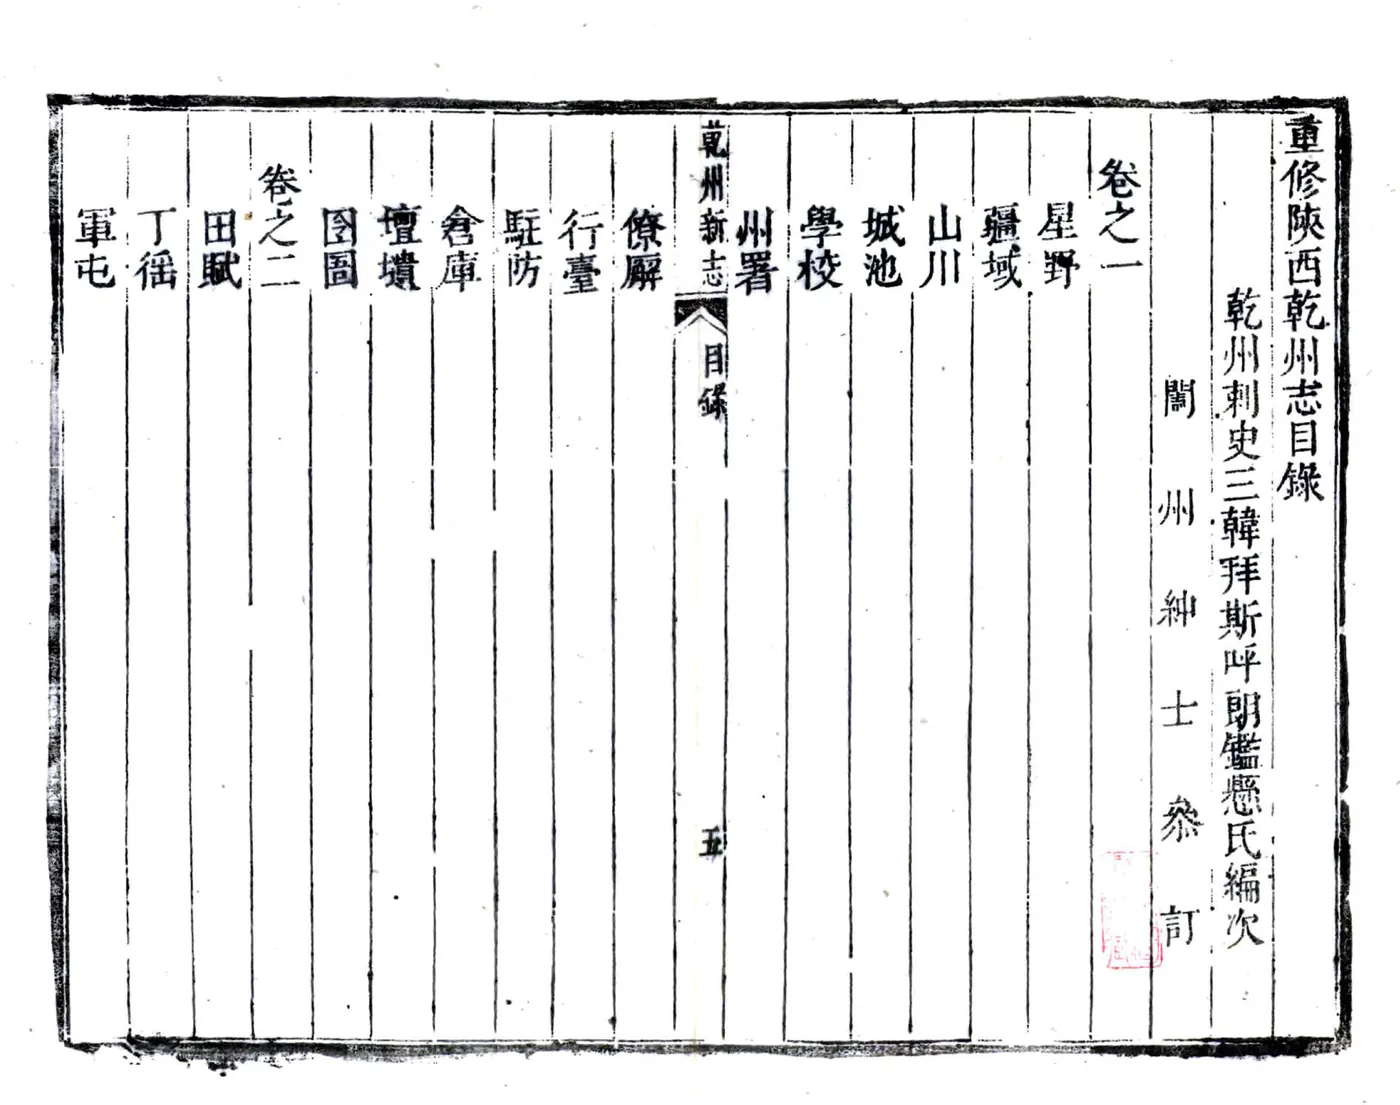 重修陝西乾州志目錄
乾州刺史三韓拜斯呼朗鑑懸氏編次
闔州紳士叅訂
卷之一
星野
疆域
山川
城池
學校
州署
乾州新志
目錄
五
僚廨
行臺
駐防
倉庫
壇壝
囹圄
卷之二
田賦
丁徭
軍屯